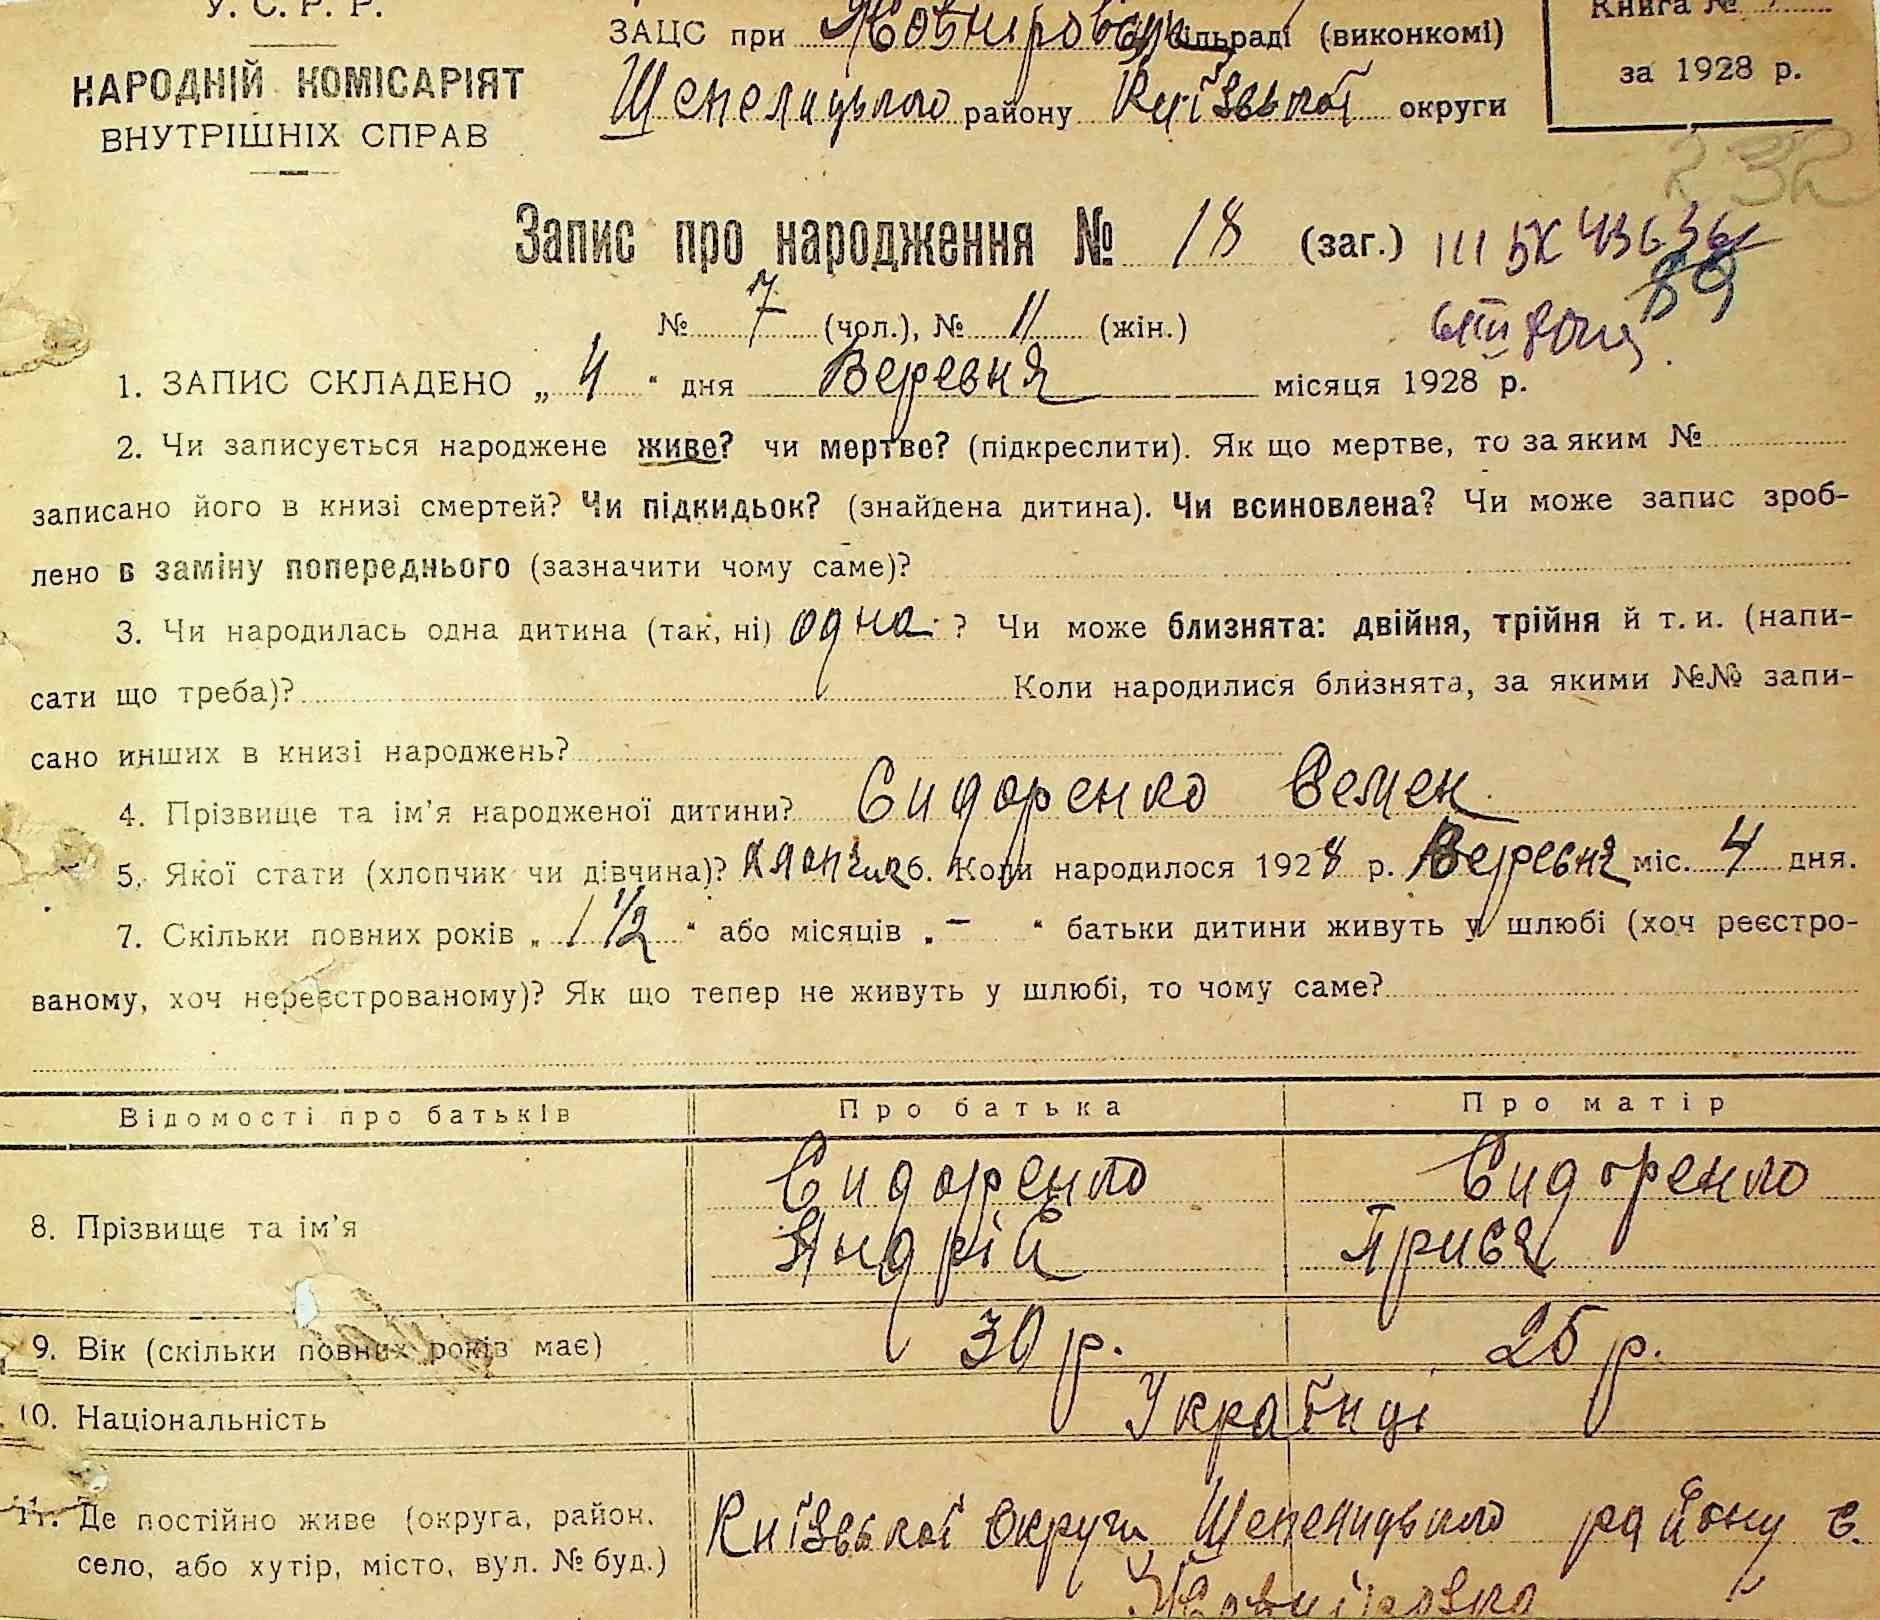 У. С. Р. Р.
НАРОДНІЙ КОМІСАРІЯТ
ВНУТРІШНІХ СПРАВ
ЗАЦС при сільраді (виконкомі)
Шепелицького району Київської округи
Книга №
за 1928 р.
232
Запис про народження № 18 (заг.)
№ 7 (чол.), № 11 (жін.)
89
1. ЗАПИС СКЛАДЕНО „ 4 “ дня Вересня місяця 1928 р.
2. Чи записується народжене живе? чи мертве? (підкреслити). Як що мертве, то за яким №
записано його в книзі смертей? Чи підкидьок? (знайдена дитина). Чи всиновлена? Чи може запис зроб-
лено в заміну попереднього (зазначити чому саме)?
3. Чи народилась одна дитина (так, ні) одна ? Чи може близнята: двійня, трійня й т. и. (напи-
сати що треба)? Коли народилися близнята, за якими №№ запи-
сано инших в книзі народжень?
4. Прізвище та ім'я народженої дитини? Сидоренко Семен
5. Якої стати (хлопчик чи дівчина)? Хлопчик 6. Коли народилося 1928 р. Вересня міс. 4 дня.
7. Скільки повних років „ 1 1/2 “ або місяців „ – “ батьки дитини живуть у шлюбі (хоч реєстро-
ваному, хоч нереєстрованому)? Як що тепер не живуть у шлюбі, то чому саме?
Відомості про батьків Про батька Про матір
8. Прізвище та ім'я Сидоренко Сидоренко
Андрій
9. Вік (скільки повних років має) 30 р. 25 р.
10. Національність Українці
11. Де постійно живе (округа, район, Київської округи Шепелицького району с.
село, або хутір, місто, вул. № буд.)